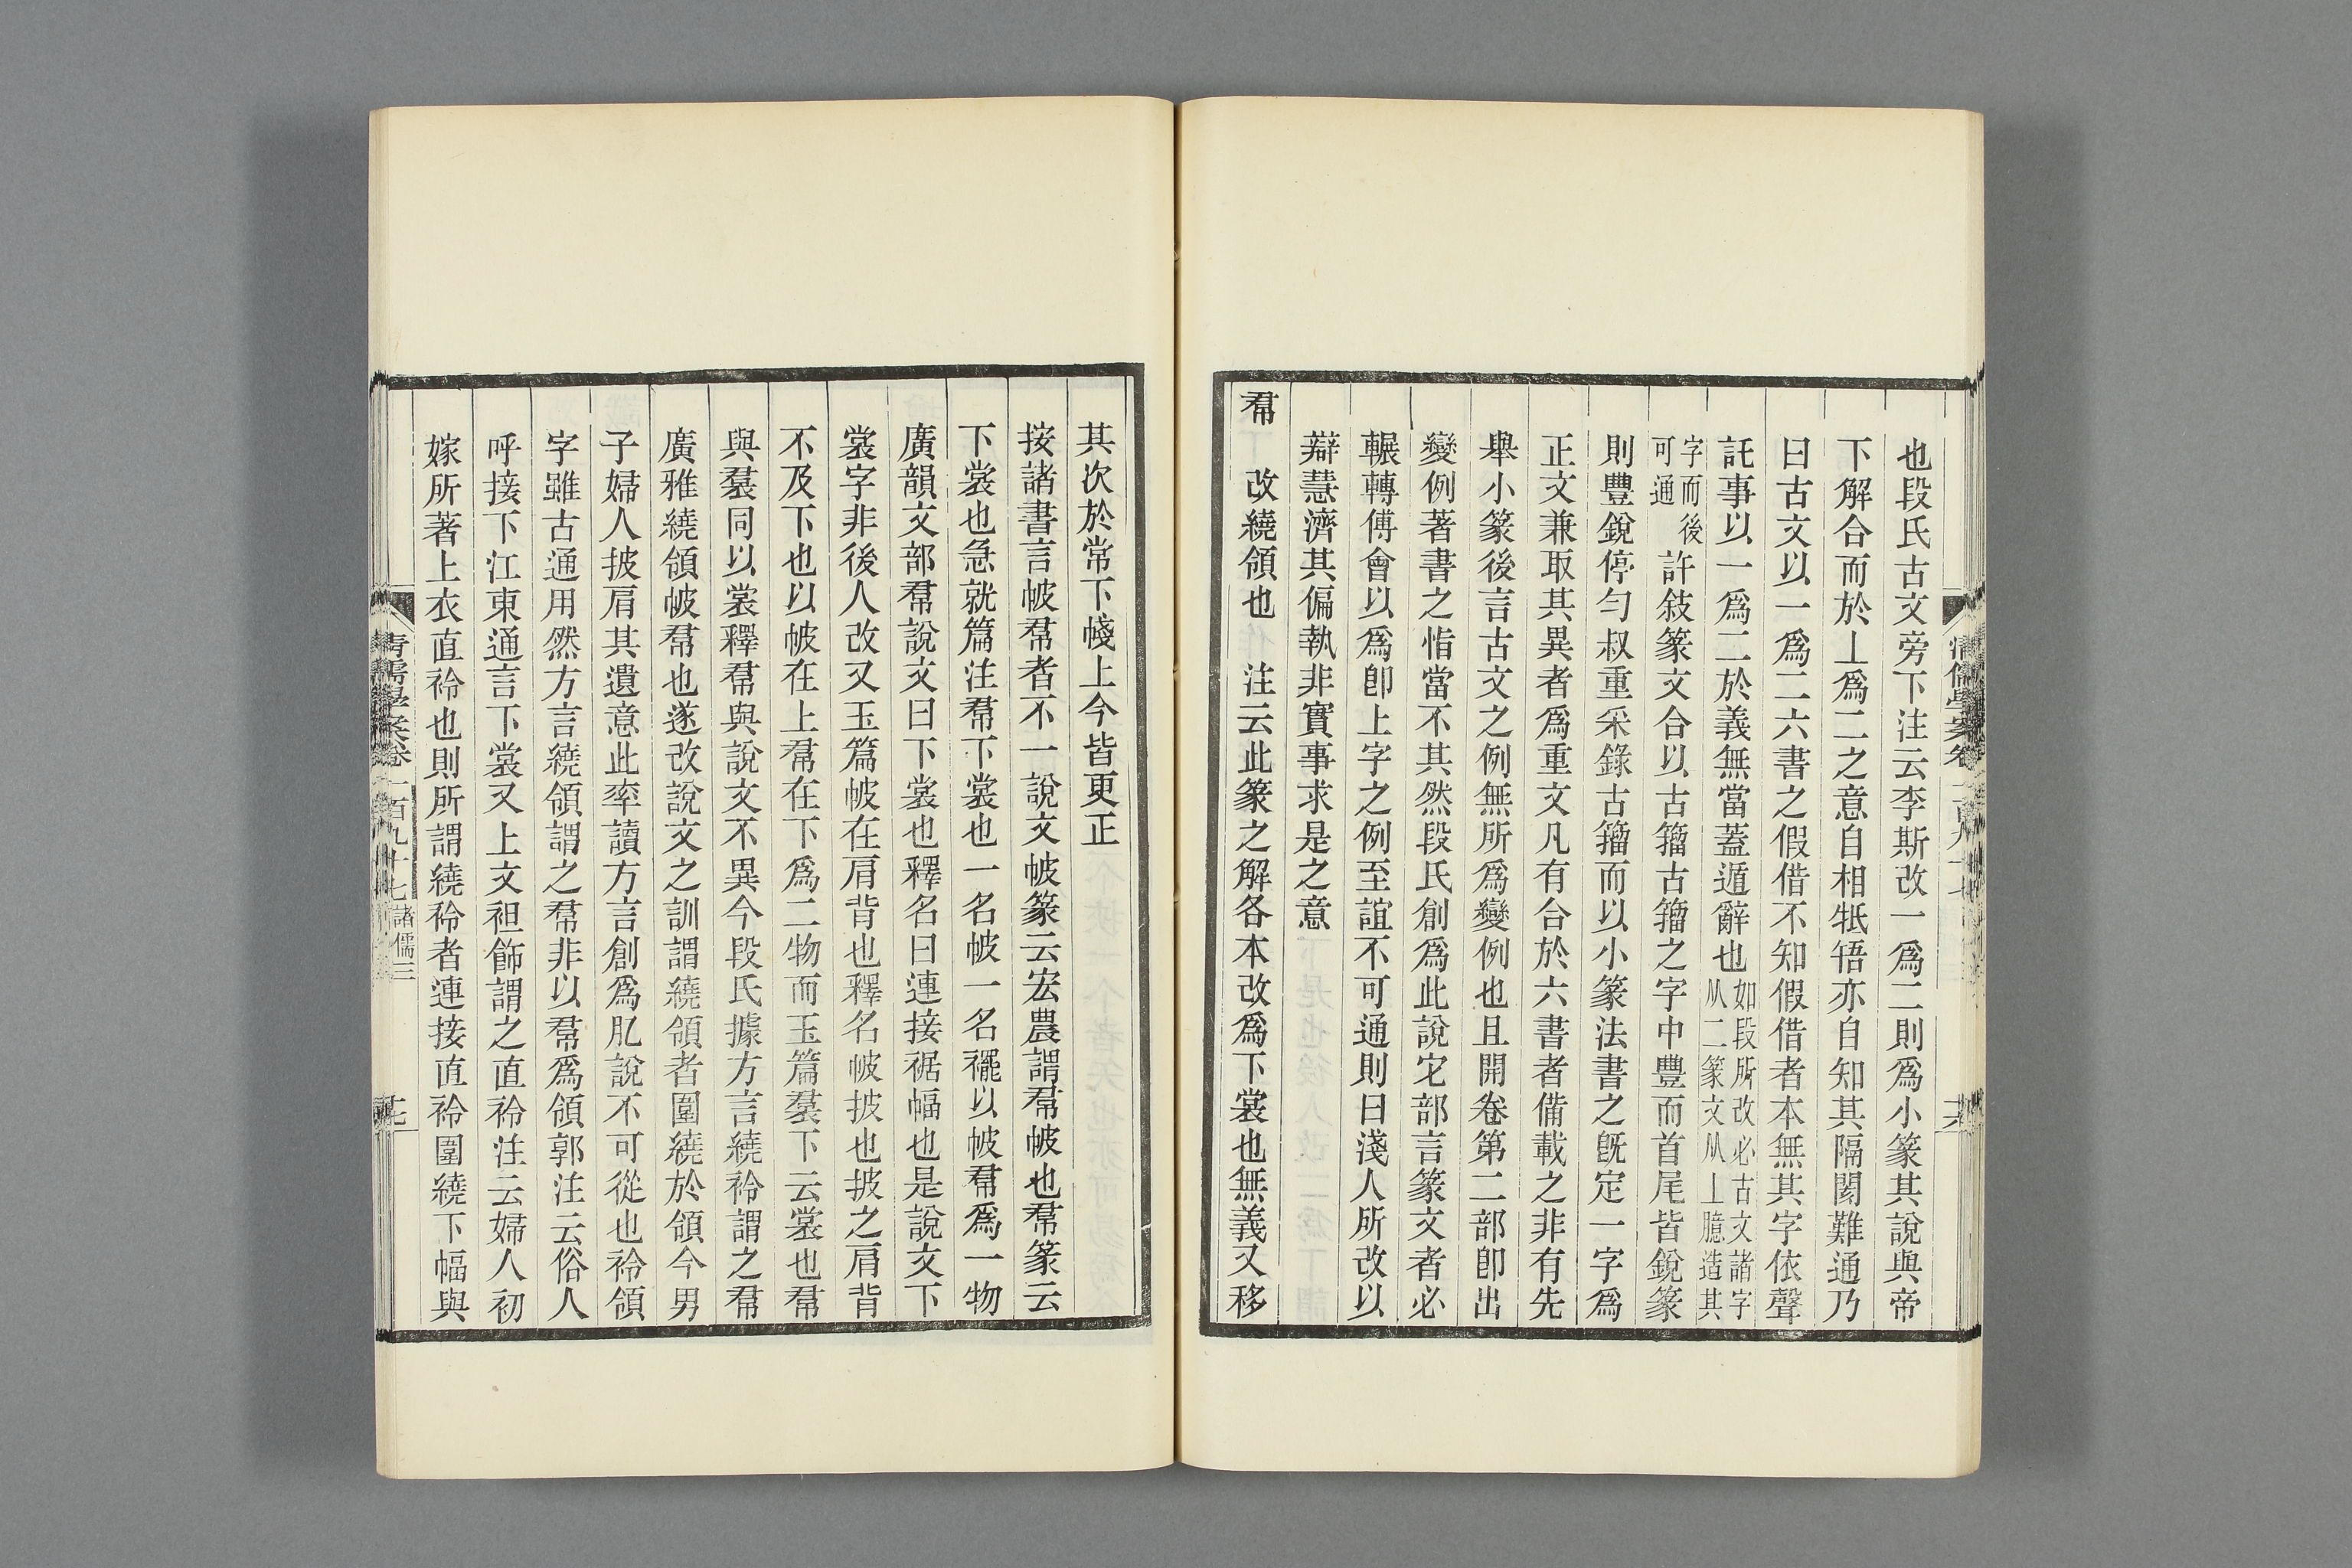 也段氏古文旁下注云李斯改一爲二則爲小篆其說與帝
下解合而於丄爲二之意自相牴牾亦自知其隔閡難通乃
曰古文以一爲二六書之假借不知假借者本無其字依聲
託事以一爲二於義無當蓋遁辭也如段所改必古文諸字从二篆文从丄臆造其
字而後可通許敍篆文合以古籀古籀之字中豐而首尾皆銳篆
則豐銳停勻叔重采錄古籀而以小篆法書之旣定一字爲
正文兼取其異者爲重文凡有合於六書者備載之非有先
舉小篆後言古文之例無所爲變例也且開卷第二部卽出
變例著書之恉當不其然段氏創爲此說它部言篆文者必
輾轉傅會以爲卽上字之例至誼不可通則曰淺人所改以
辯慧濟其偏執非實事求是之意
帬 改繞領也 注云此篆之解各本改爲下裳也無義又移
其次於常下帴上今皆更正
按諸書言帔帬者不一說文帔篆云宏農謂帬帔也帬篆云
下裳也急就篇注帬下裳也一名帔一名襬以帔帬爲一物
廣韻文部帬說文曰下裳也釋名曰連接裾幅也是說文下
裳字非後人改又玉篇帔在肩背也釋名帔披也披之肩背
不及下也以帔在上帬在下爲二物而玉篇裠下云裳也帬
與裠同以裳釋帬與說文不異今段氏據方言繞衿謂之帬
廣雅繞領帔帬也遂改說文之訓謂繞領者圍繞於領今男
子婦人披肩其遺意此率讀方言創爲肊說不可從也衿領
字雖古通用然方言繞領謂之帬非以帬爲領郭注云俗人
呼接下江東通言下裳又上文袒飾謂之直衿注云婦人初
嫁所著上衣直衿也則所謂繞衿者連接直衿圍繞下幅與
清儒學案卷一百九十七 諸儒三
十七